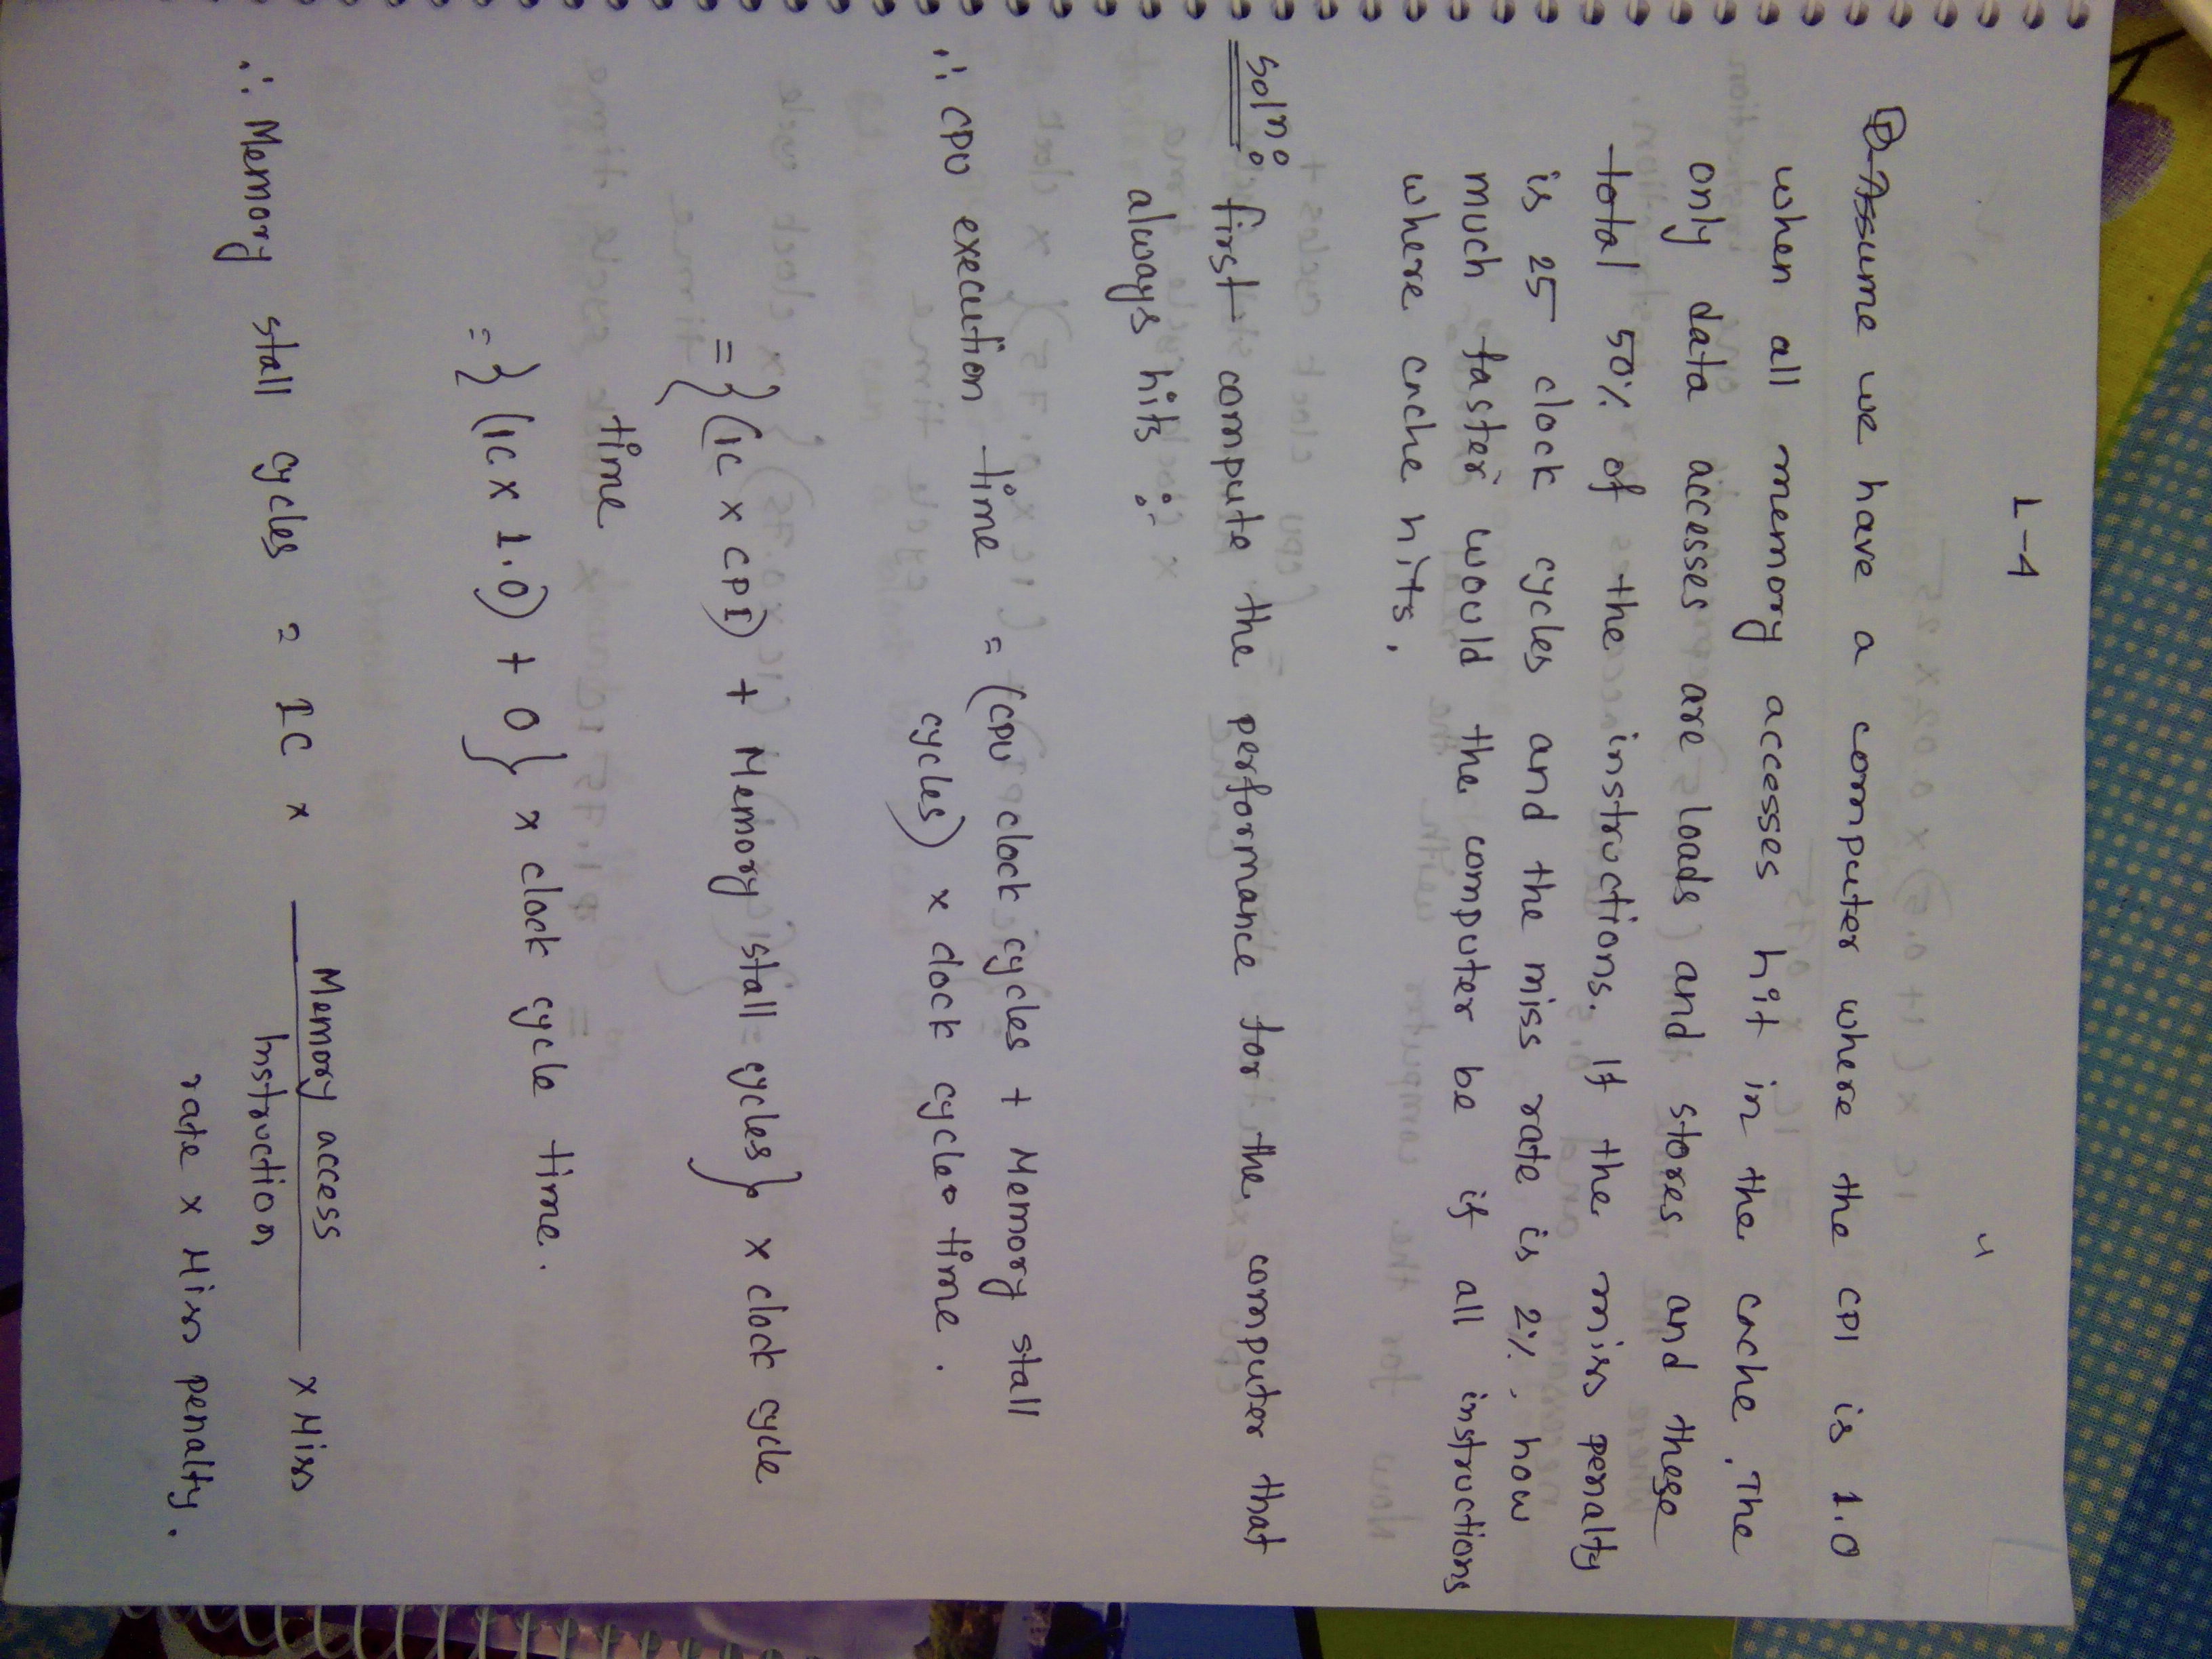 L-4
Assume we have a computer where the CPI is 1.0
when all memory accesses hit in the cache. The
only data accesses are loads and stores and these
total 50% of the instructions. If the miss penalty
is 25 clock cycles and the miss rate is 2%, how
much faster would the computer be if all instructions
where cache hits.
Solⁿ: first compute the performance for the computer that
always hits :-
∴ CPU execution time = (CPU clock cycles + Memory stall
cycles) x clock cycle time.
= {(IC x CPI) + Memory stall cycles} x clock cycle
time
= {(IC x 1.0) + 0} x clock cycle time.
∴ Memory stall cycles = IC x Memory access / Instruction x Miss
rate x Miss penalty.